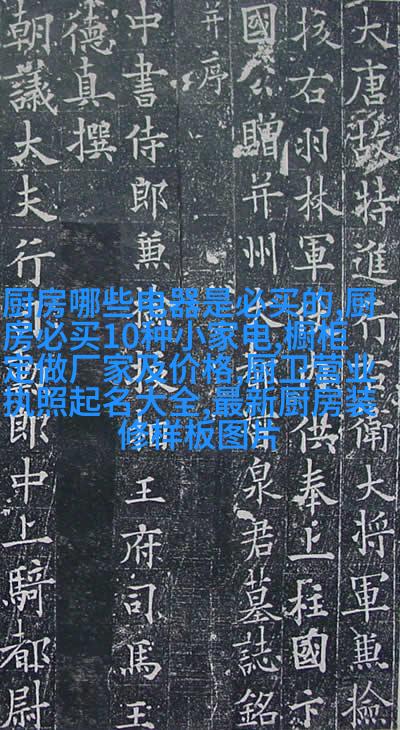 大唐故特進行右衛大將軍兼檢
校右羽林軍供奉上柱國卞
國公贈并州泉君墓誌銘
并序
中書侍郎兼檢校王府司馬王
德真撰
朝議大夫行郎中上騎都尉
厨房哪些电器是必买的,厨
房必买10种小家电,橱柜
定做厂家及价格,厨卫营业
执照起名大全,最新厨房装
修样板图片